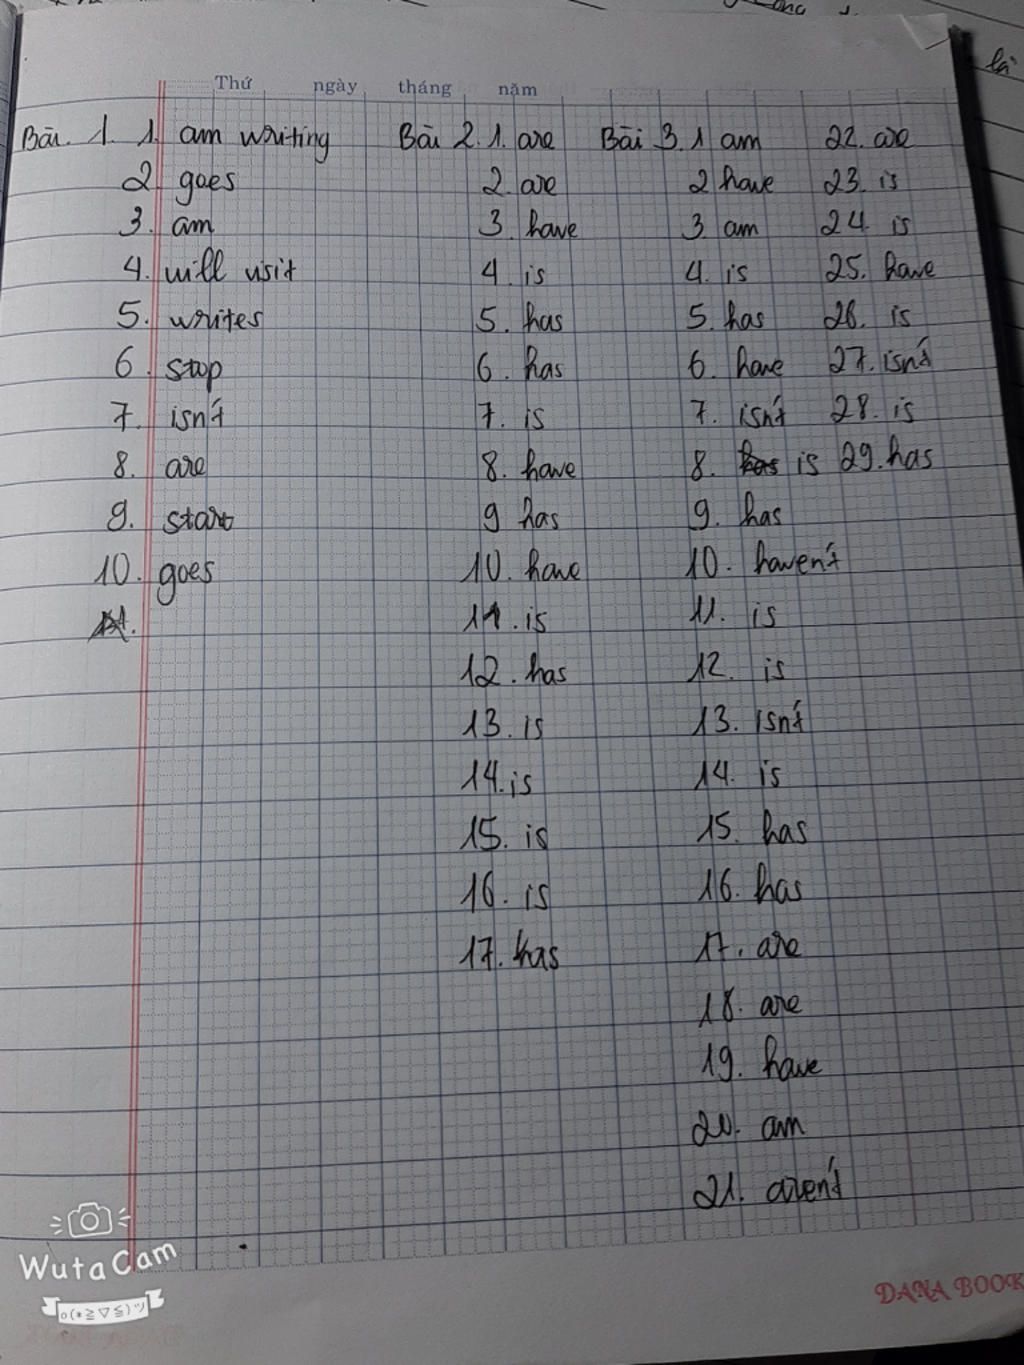 Thứ ngày tháng năm
Bài. 1. 1. am writing
2 goes
3. am
4. will visit
5. writes
6. stop
7. isn't
8. are
9. start
10. goes
Bài 2. 1. are
2. are
3. have
4 is
5. has
6. has
7. is
8. have
9 has
10. have
11. is
12. has
13. is
14. is
15. is
16. is
17. has
Bài 3. 1 am
2 have
3 am
4. is
5. has
6. have
7. isn't
8. has is
9. has
10. haven't
11. is
12. is
13. isn't
14. is
15. has
16. has
17. are
18. are
19. have
20. am
21. aren't
22. are
23. is
24 is
25. have
26. is
27. isn't
28. is
29. has
WutaCam
DANA BOOK